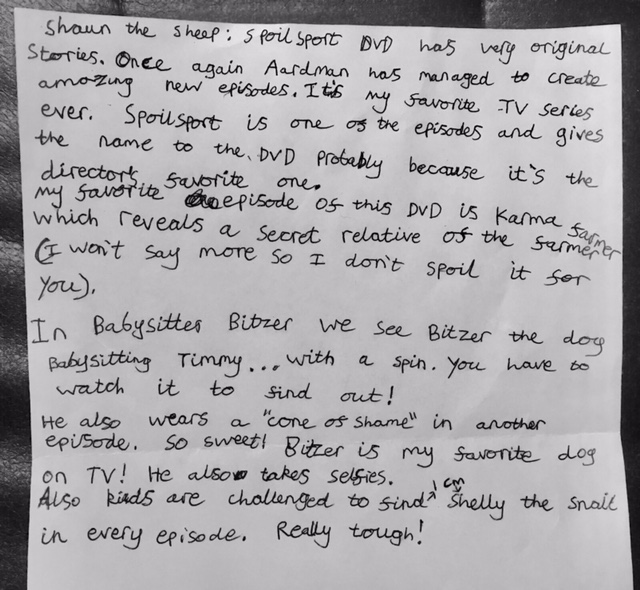 Shaun the Sheep: Spoilsport DVD has very original
Stories. Once again Aardman has managed to create
amazing new episodes. It's my favorite TV series
ever. Spoilsport is one of the episodes and gives
the name to the DVD probably because it's the
director's favorite one.
my favorite episode of this DVD is Karma farmer
which reveals a secret relative of the farmer
(I won't say more so I don't spoil it for
you).
In Babysitter Bitzer we see Bitzer the dog
Babysitting Timmy... with a spin. You have to
watch it to find out!
He also wears a "cone of shame" in another
episode. So sweet! Bitzer is my favorite dog
on TV! He also takes selfies.
Also kids are challenged to find 1 cm Shelly the snail
in every episode. Really tough!